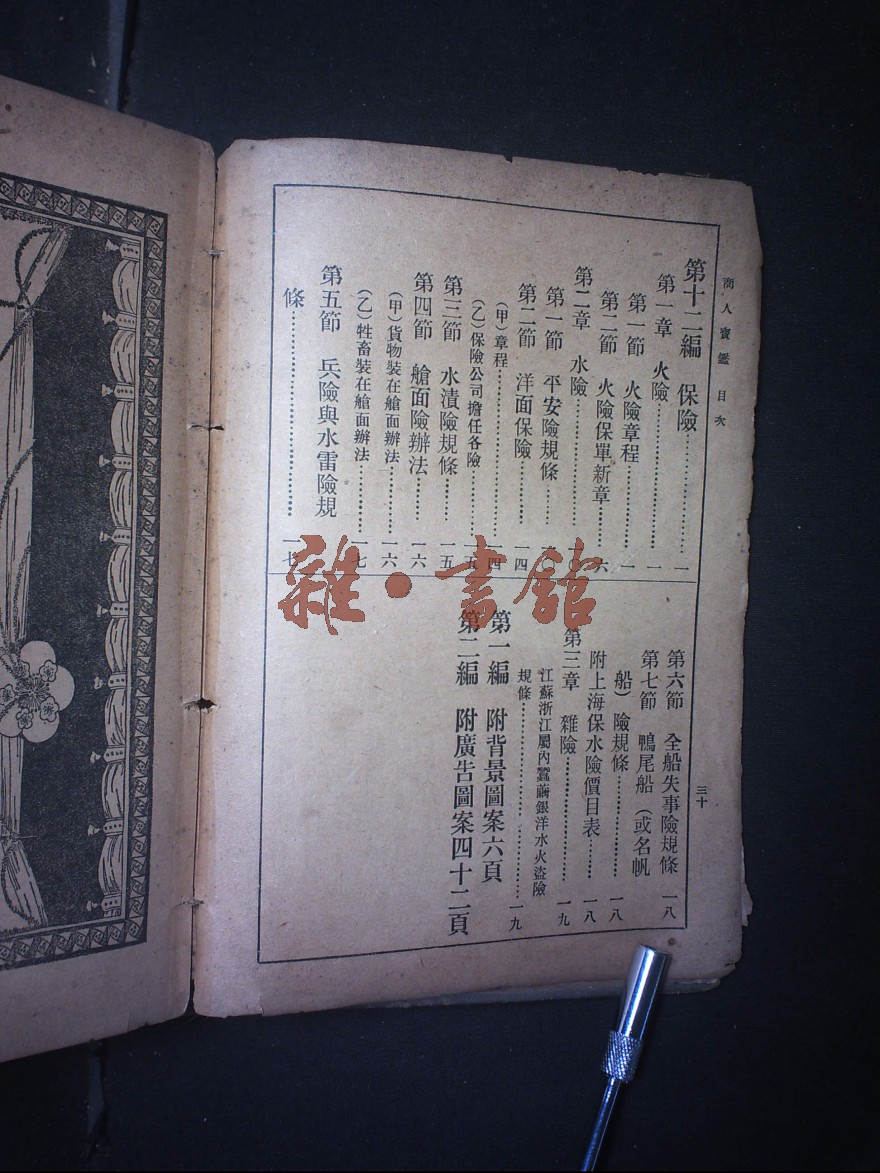 商人寶鑑 目次
三十
第十二編 保險……一
第一章 火險……一
第一節 火險章程……一
第二節 火險保單新章……六
第二章 水險……一〇
第一節 平安險規條……一
第二節 洋面保險……一四
(甲)章程……一四
(乙)保險公司擔任各險……一五
第三節 水漬險規條……一五
第四節 艙面險辦法……一六
(甲)貨物裝在艙面辦法……一六
(乙)牲畜裝在艙面辦法……一七
第五節 兵險與水雷險規
條……一七
第六節 全船失事險規條 一八
第七節 鴨尾船(或名帆
船)險規條……一八
附上海保水險價目表……一八
第三章 雜險……一九
江蘇浙江屬內蠶繭銀洋水火盜險
規條……一九
第一編 附背景圖案六頁
第二編 附廣告圖案四十二頁
雜·書館